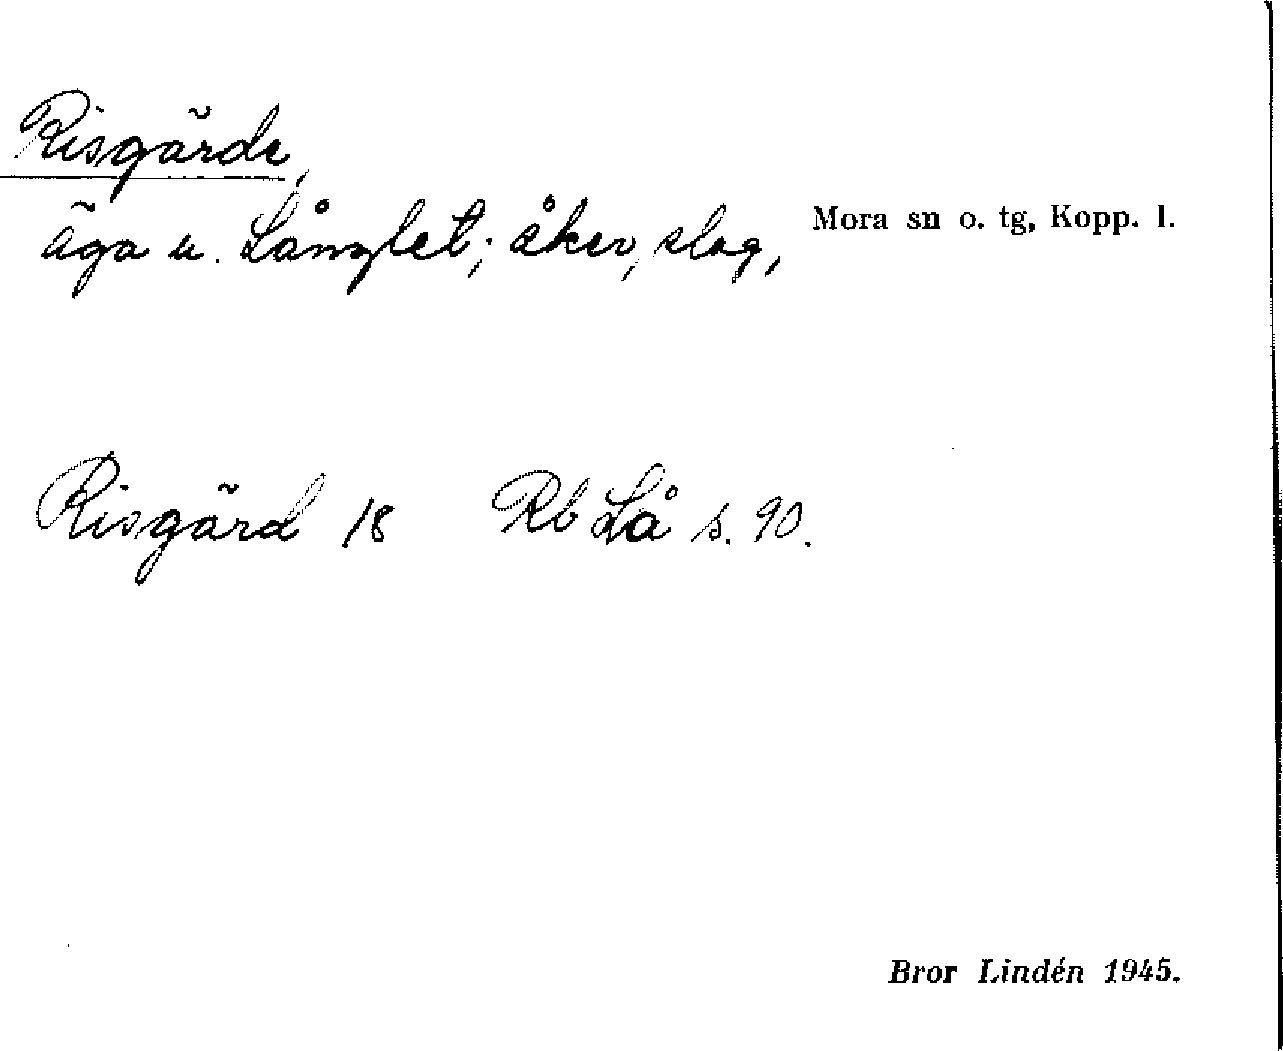 Risgärde,
äga u. Långlet; åker, slog,
Mora sn o. tg, Kopp. l.
Risgärd 18 Rb Lå s. 90.
Bror Lindén 1945.